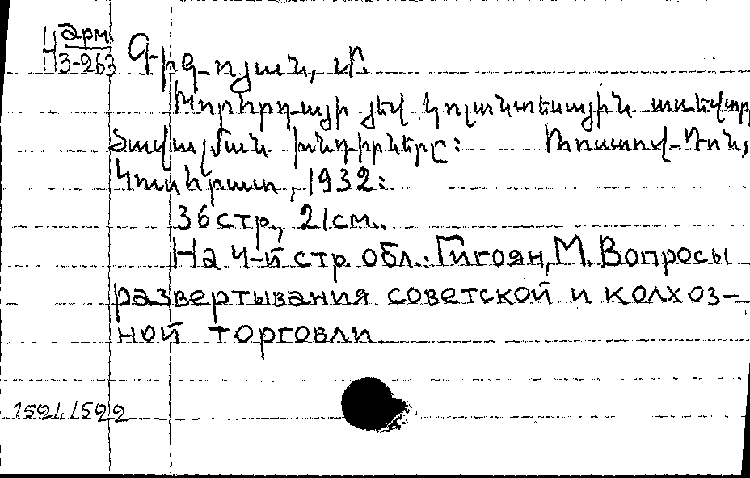 Н арм
3-263 Գիգոյան, Մ.
Խորհրդային յեվ կոլտնտեսային առեվտրի
ծավալման խնդիրները: Ռոստով-Դոն,
1932:
36 стр., 21 см.
На 4-й стр. обл.: Гигоян, М. Вопросы
развертывания советской и колхоз-
ной торговли
1521/1522